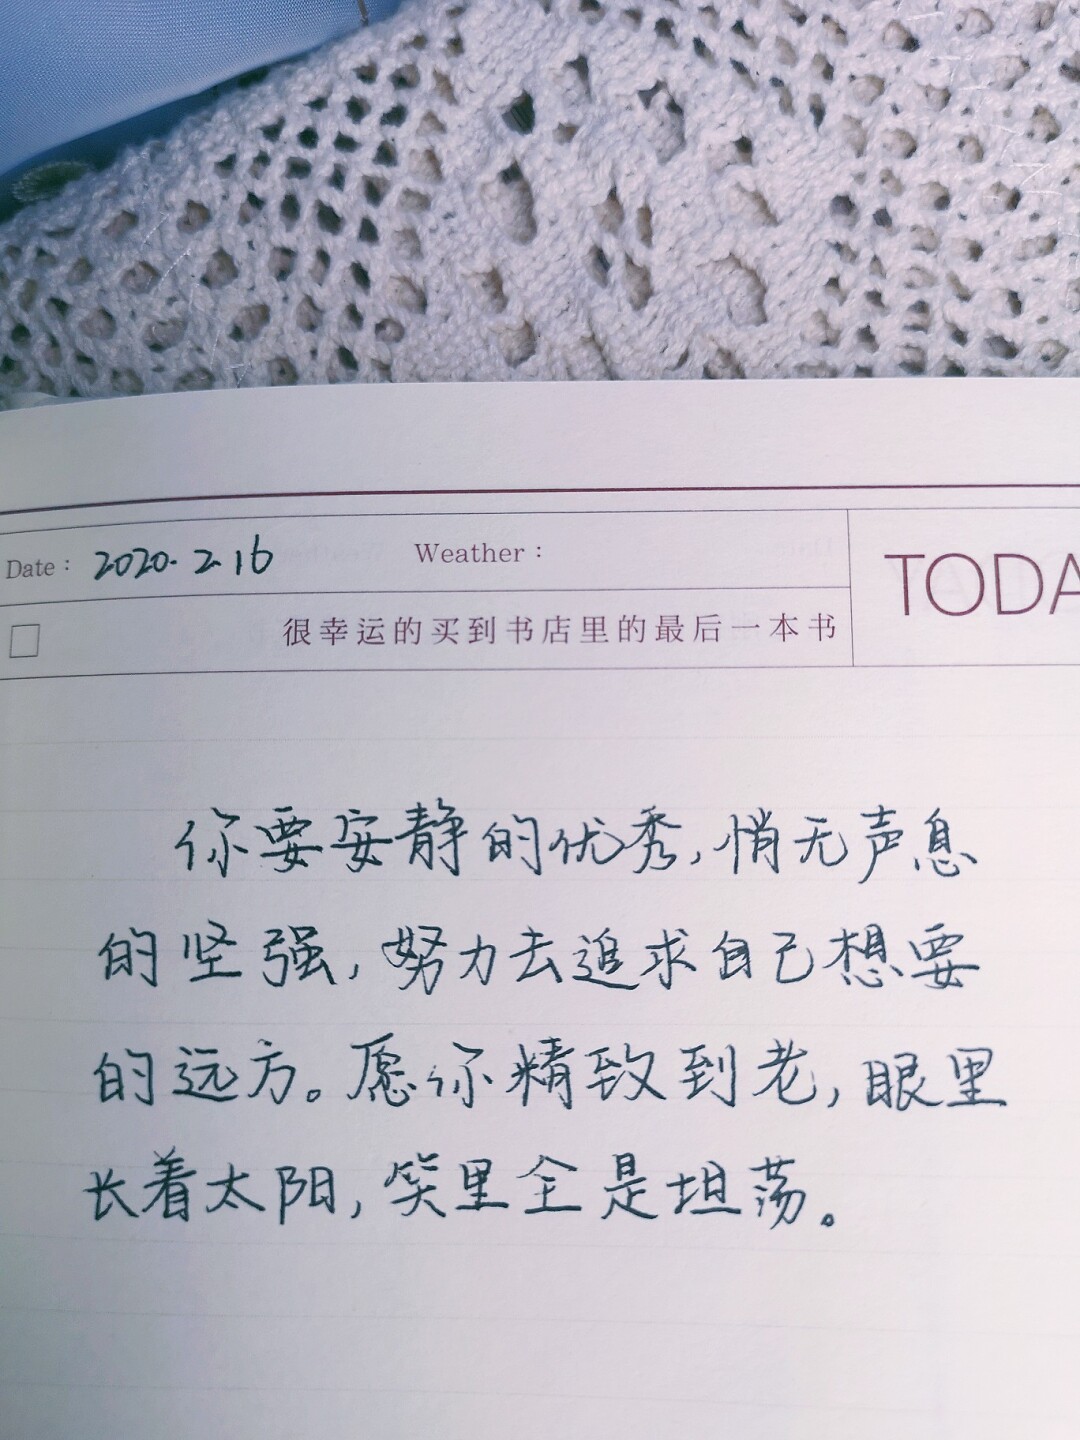 Date： 2020.2.16 Weather： TODA
很幸运的买到书店里的最后一本书
你要安静的优秀，悄无声息
的坚强，努力去追求自己想要
的远方。愿你精致到老，眼里
长着太阳，笑里全是坦荡。